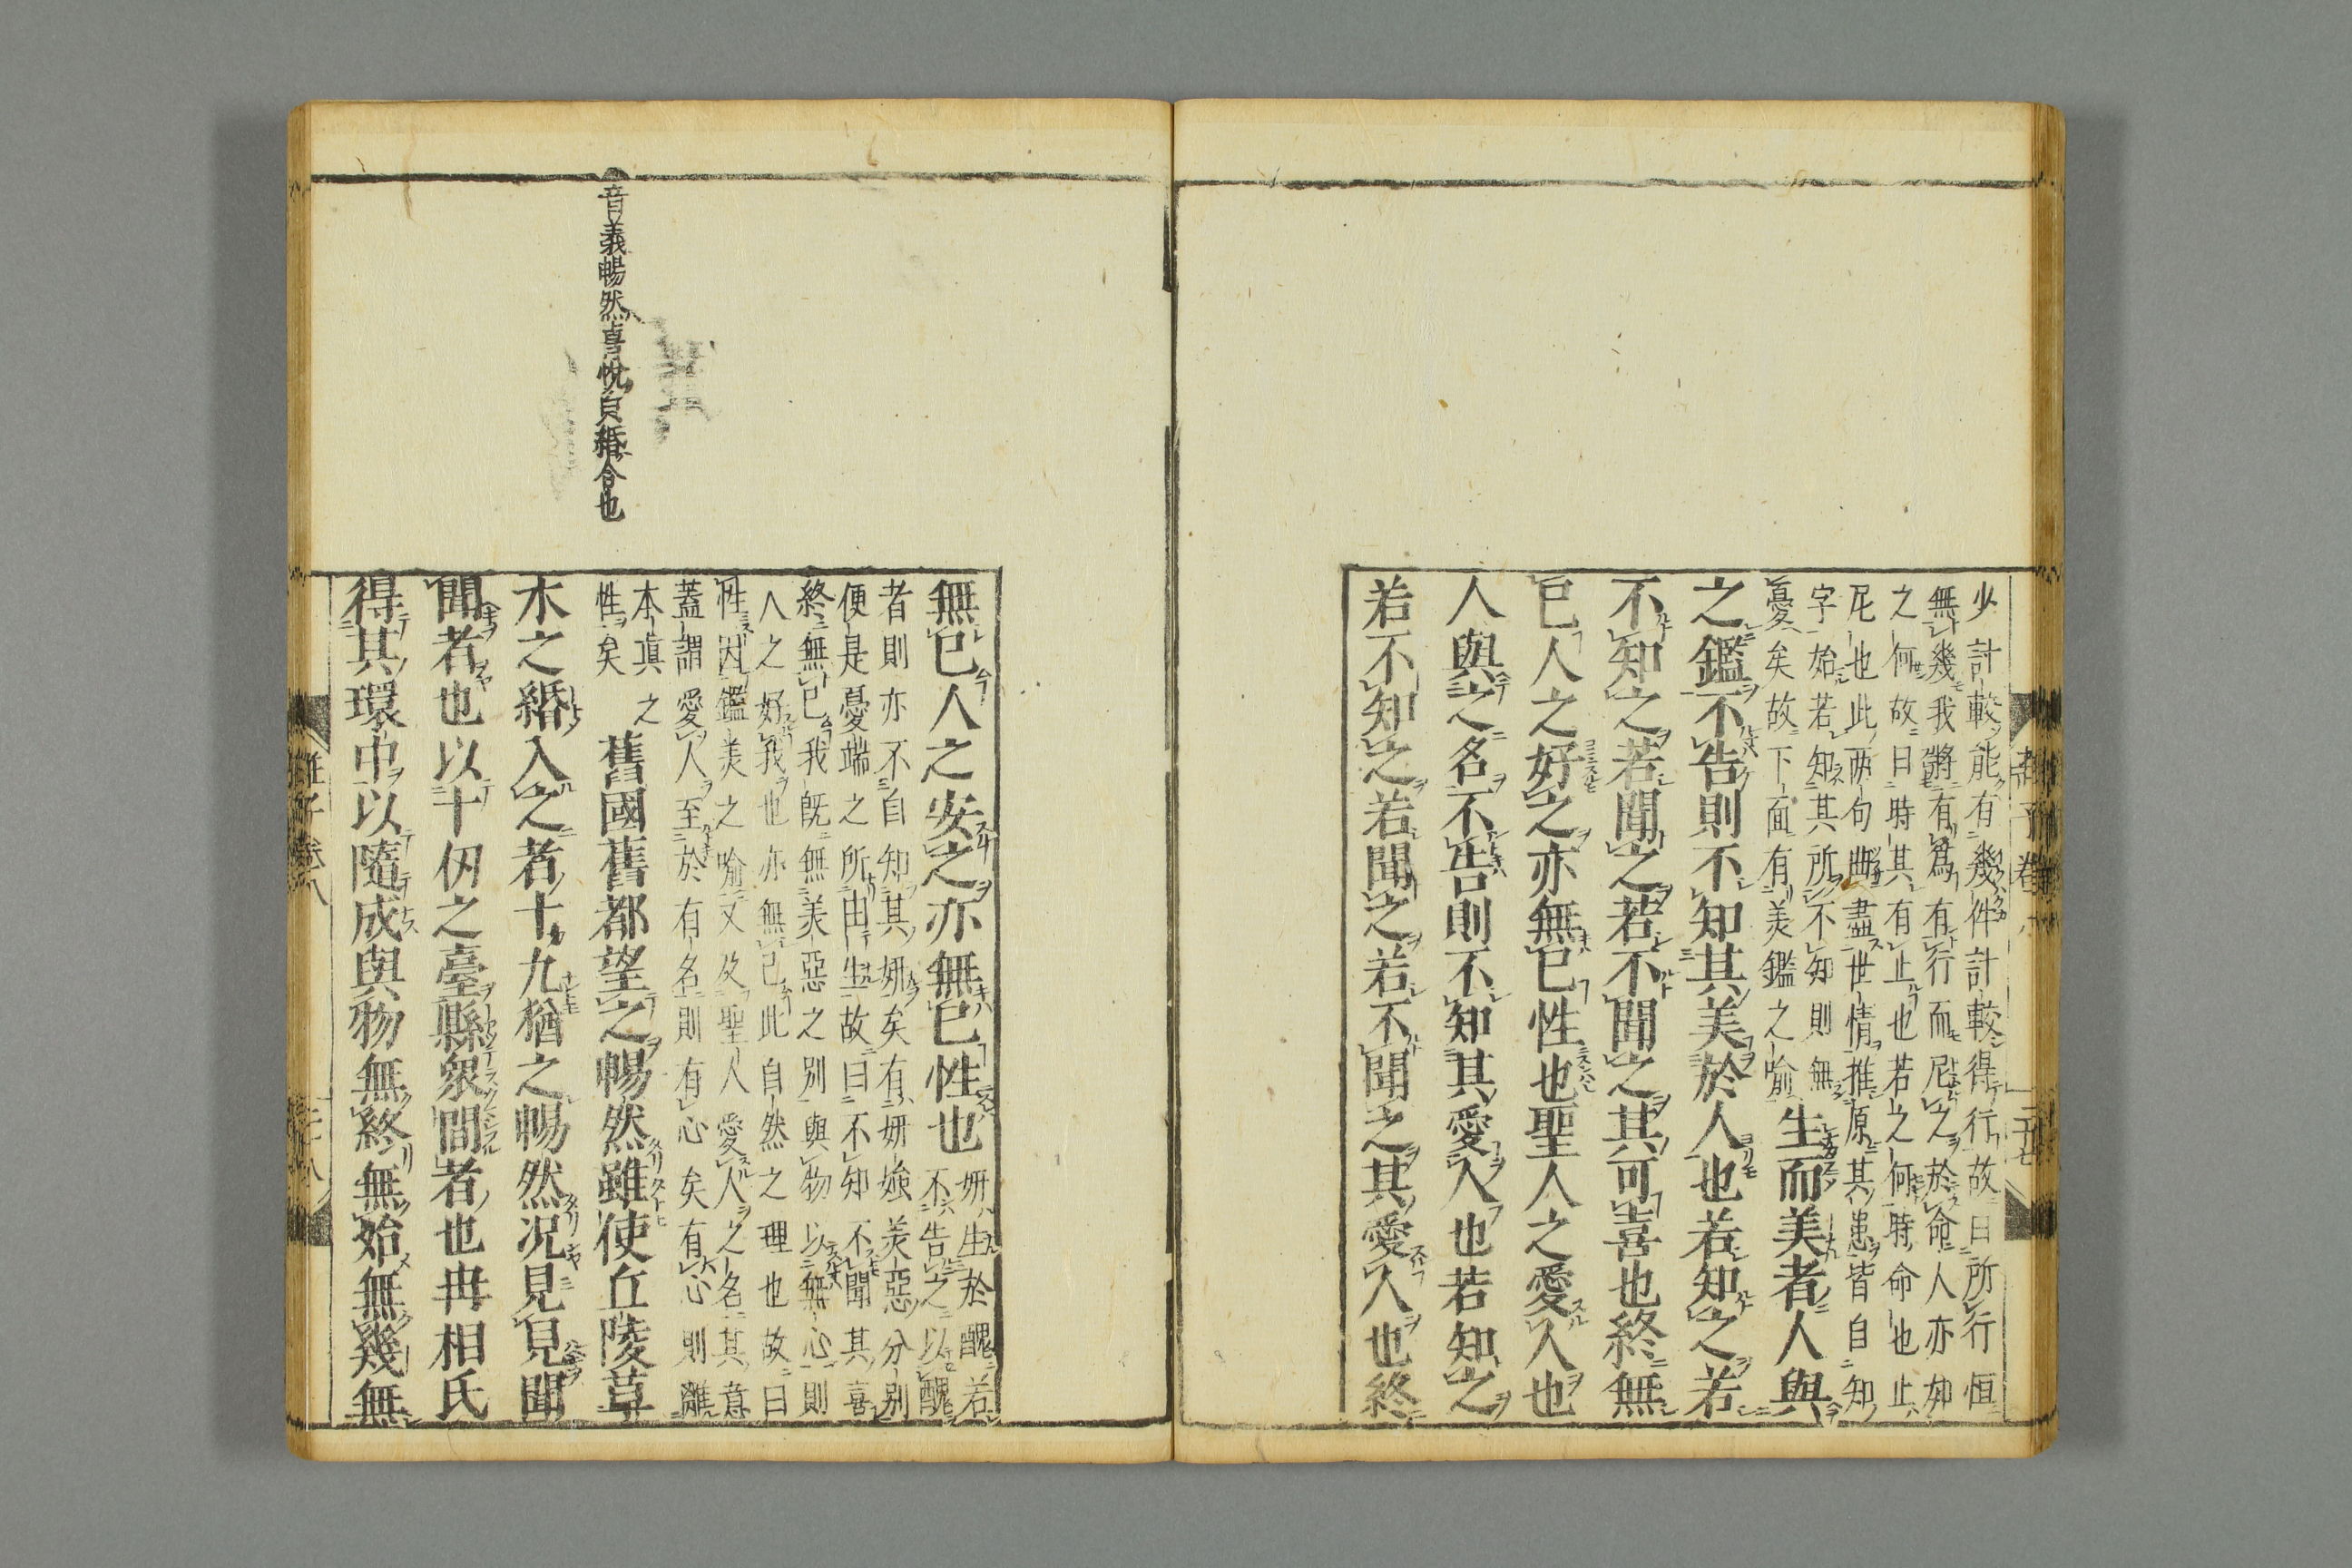 少計較能有幾件計較得行故曰所行恒
無幾我將有爲有行而尼之於命人亦如
之何故曰時其有止也若之何時命也止
尼也此两句断盡世情推原其患皆自知
字始若知其所不知則無
憂矣故下面有美鑑之喻生而美者人與
之鑑不告則不知其美於人也若知之若
不知之若聞之若不聞之其可喜也終無
已人之好之亦無已性也聖人之愛人也
人與之名不告則不知其愛人也若知之
若不知之若聞之若不聞之其愛人也終
莊子卷八
二十七
無已人之安之亦無已性也妍生於醜若
不告之以醜
者則亦不自知其妍矣有妍媸美惡分別
便是憂端之所由生故曰不知不聞其喜
終無已我既無美惡之別與物以無心則
人之好我也亦無已此自然之理也故曰
性因鑑美之喻又及聖人愛人之名其意
蓋謂愛人至於有名則有心矣有心則離
本真之
性矣
舊國舊都望之暢然雖使丘陵草
木之緡入之者十九猶之暢然况見見聞
聞者也以十仞之臺縣衆間者也冉相氏
得其環中以隨成與物無終無始無幾無
音義暢然喜悅皃緡合也
莊子卷八
二十八